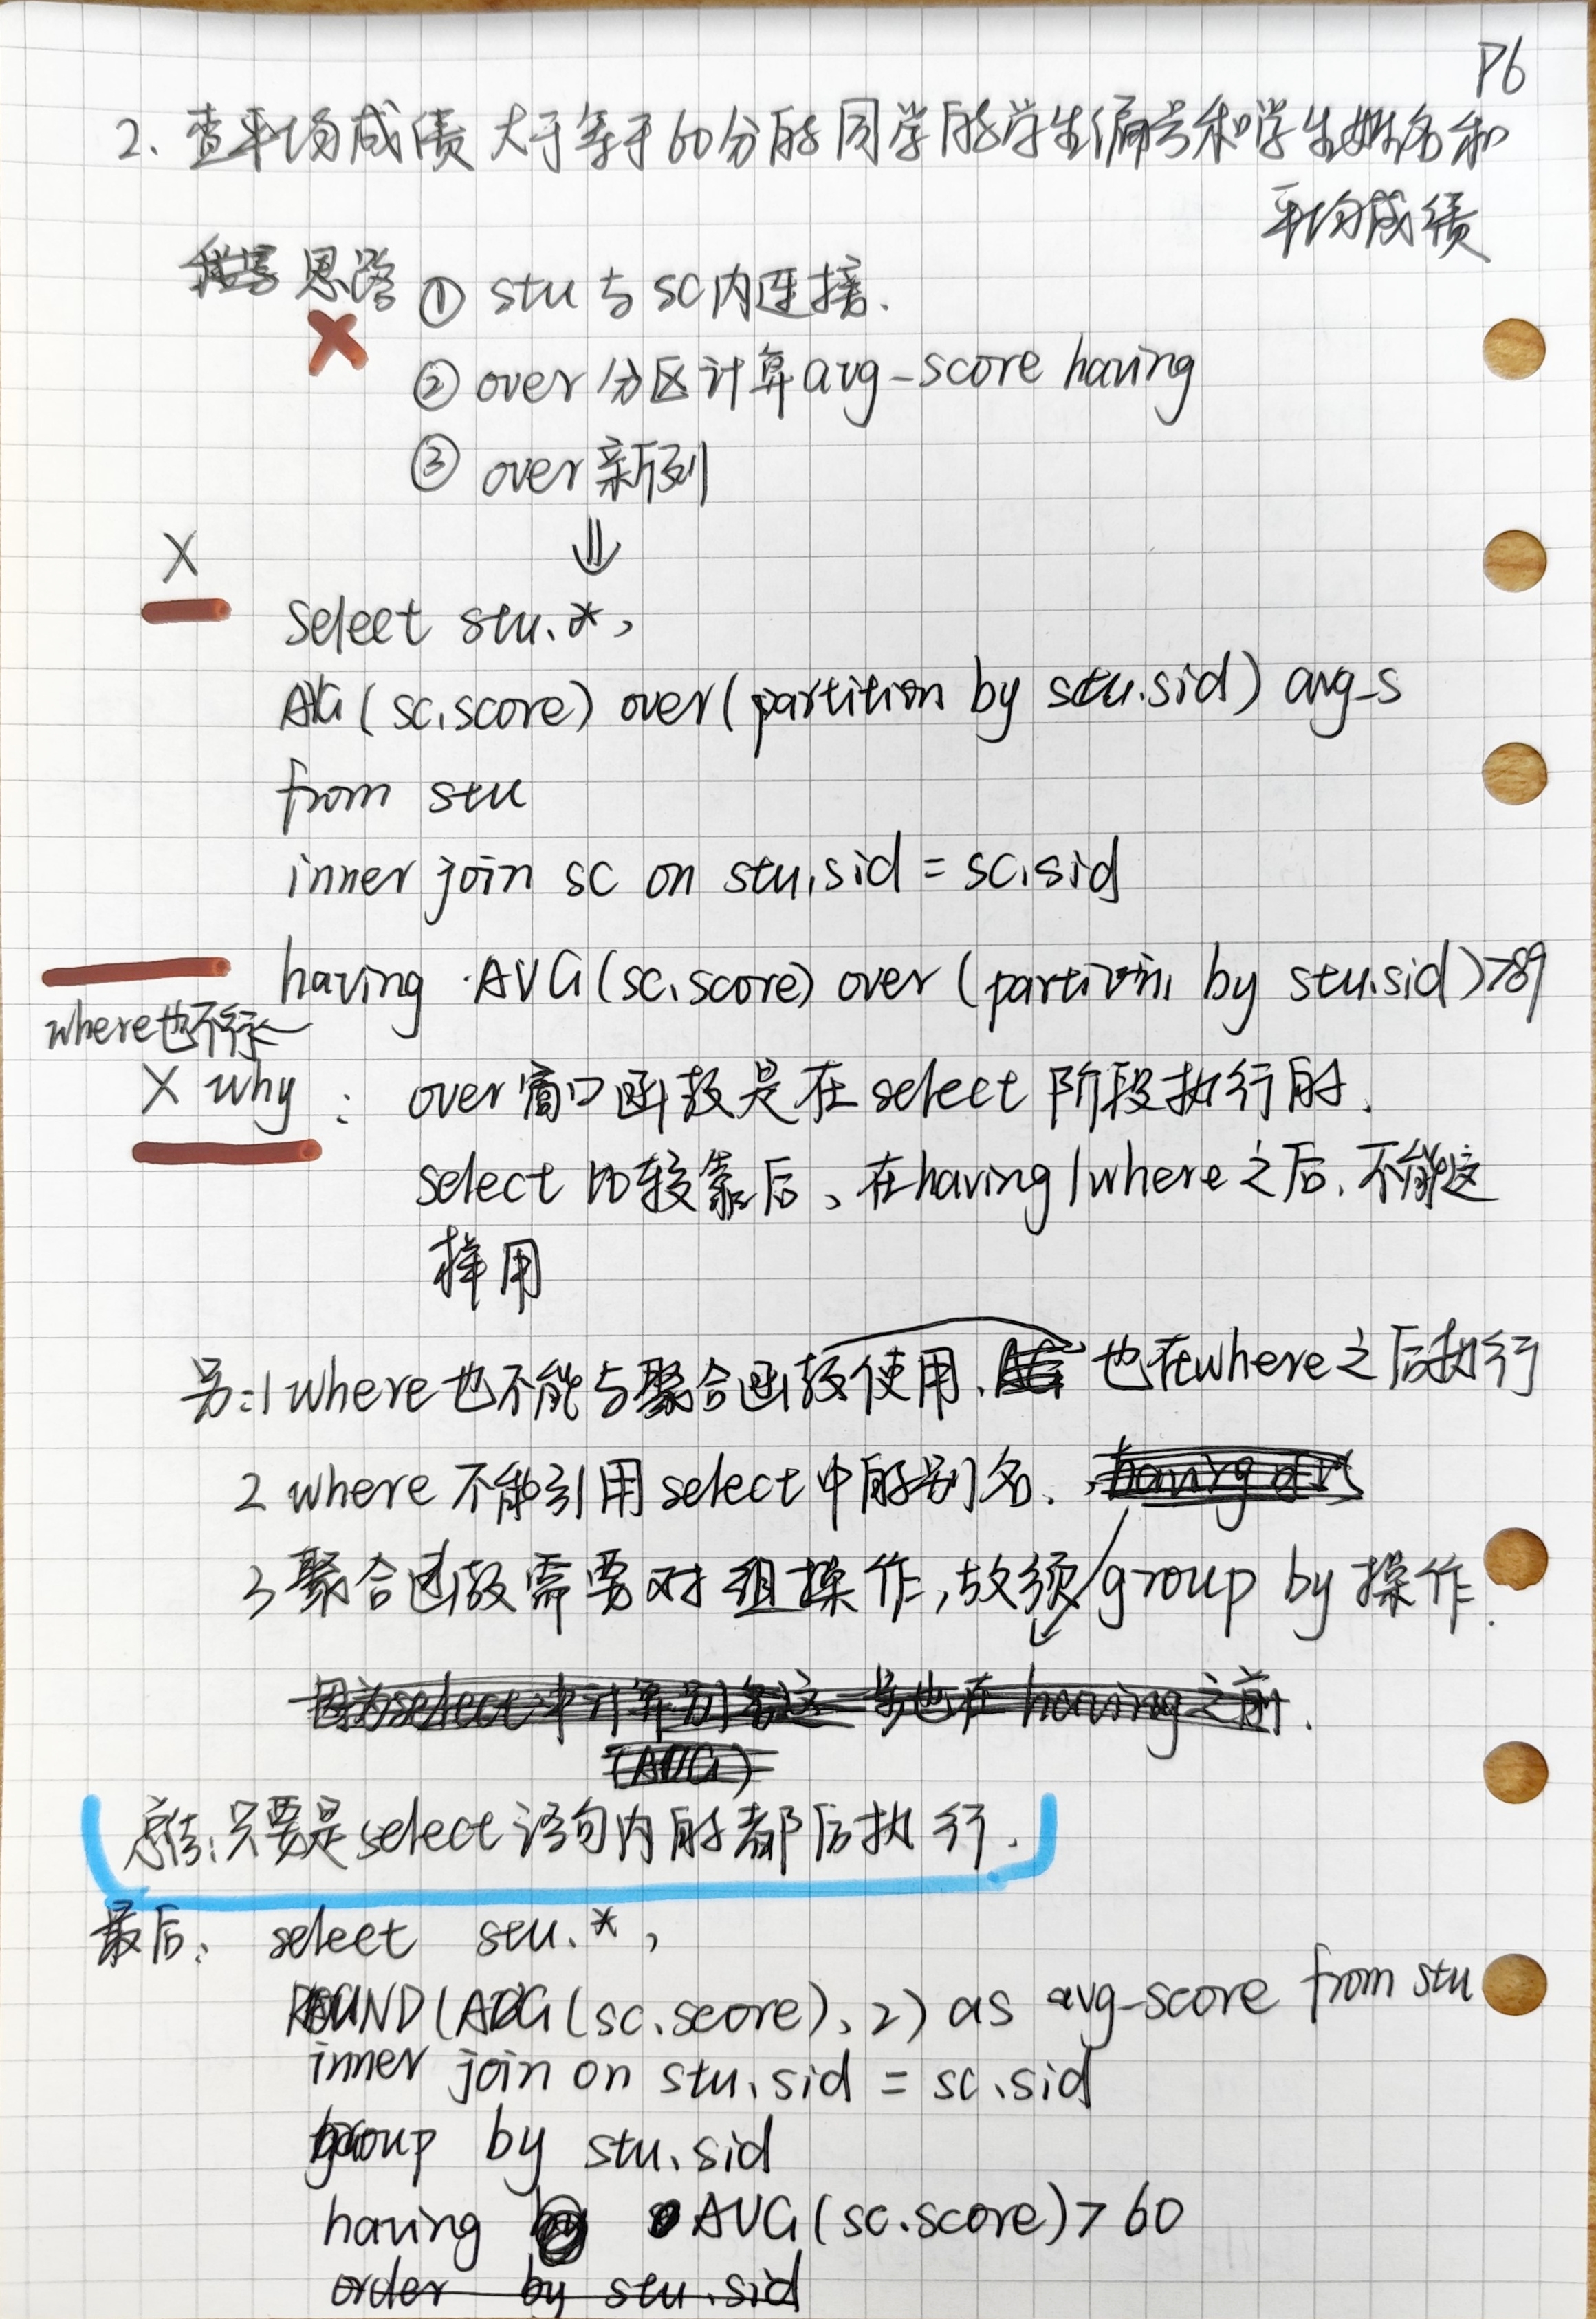 P6
2、查平均成绩大于等于60分的同学的学生编号和学生姓名和
平均成绩
思路 ① stu与sc内连接.
② over分区计算avg_score having
③ over新列
⇓
X
select stu.*,
AVG(sc.score) over(partition by stu.sid) avg_s
from stu
inner join sc on stu.sid = sc.sid
having AVG(sc.score) over(partition by stu.sid)>89
where也不行
X why: over窗口函数是在select阶段执行的.
select比较靠后、在having/where之后.不能这
样用
另:1 where也不能与聚合函数使用、也在where之后执行
2 where不能引用select中的别名.
3 聚合函数需要对组操作,故须group by操作.
总结:只要是select语句内的都后执行.
最后: select stu.*,
ROUND(AVG(sc.score),2) as avg_score from stu
inner join on stu.sid = sc.sid
group by stu.sid
having AVG(sc.score)>60
order by stu.sid